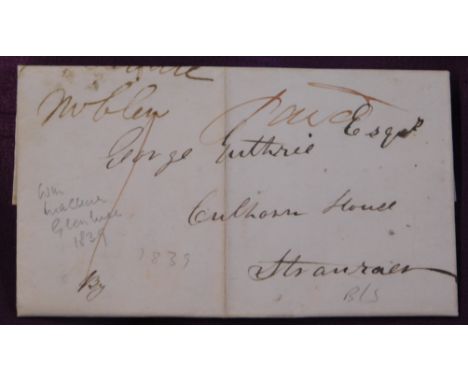 paid
George Guthrie Esqr
Culhorn House
Stranraer
Wm
Wallace
Glenluce
1839
1839
By
B/S